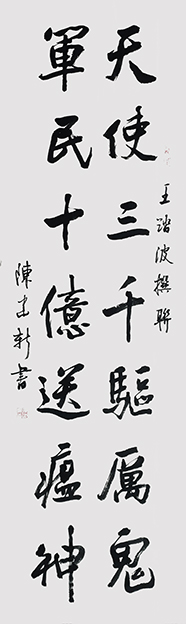 天使三千驅厲鬼
軍民十億送瘟神
王踏波撰聯
陳建新書